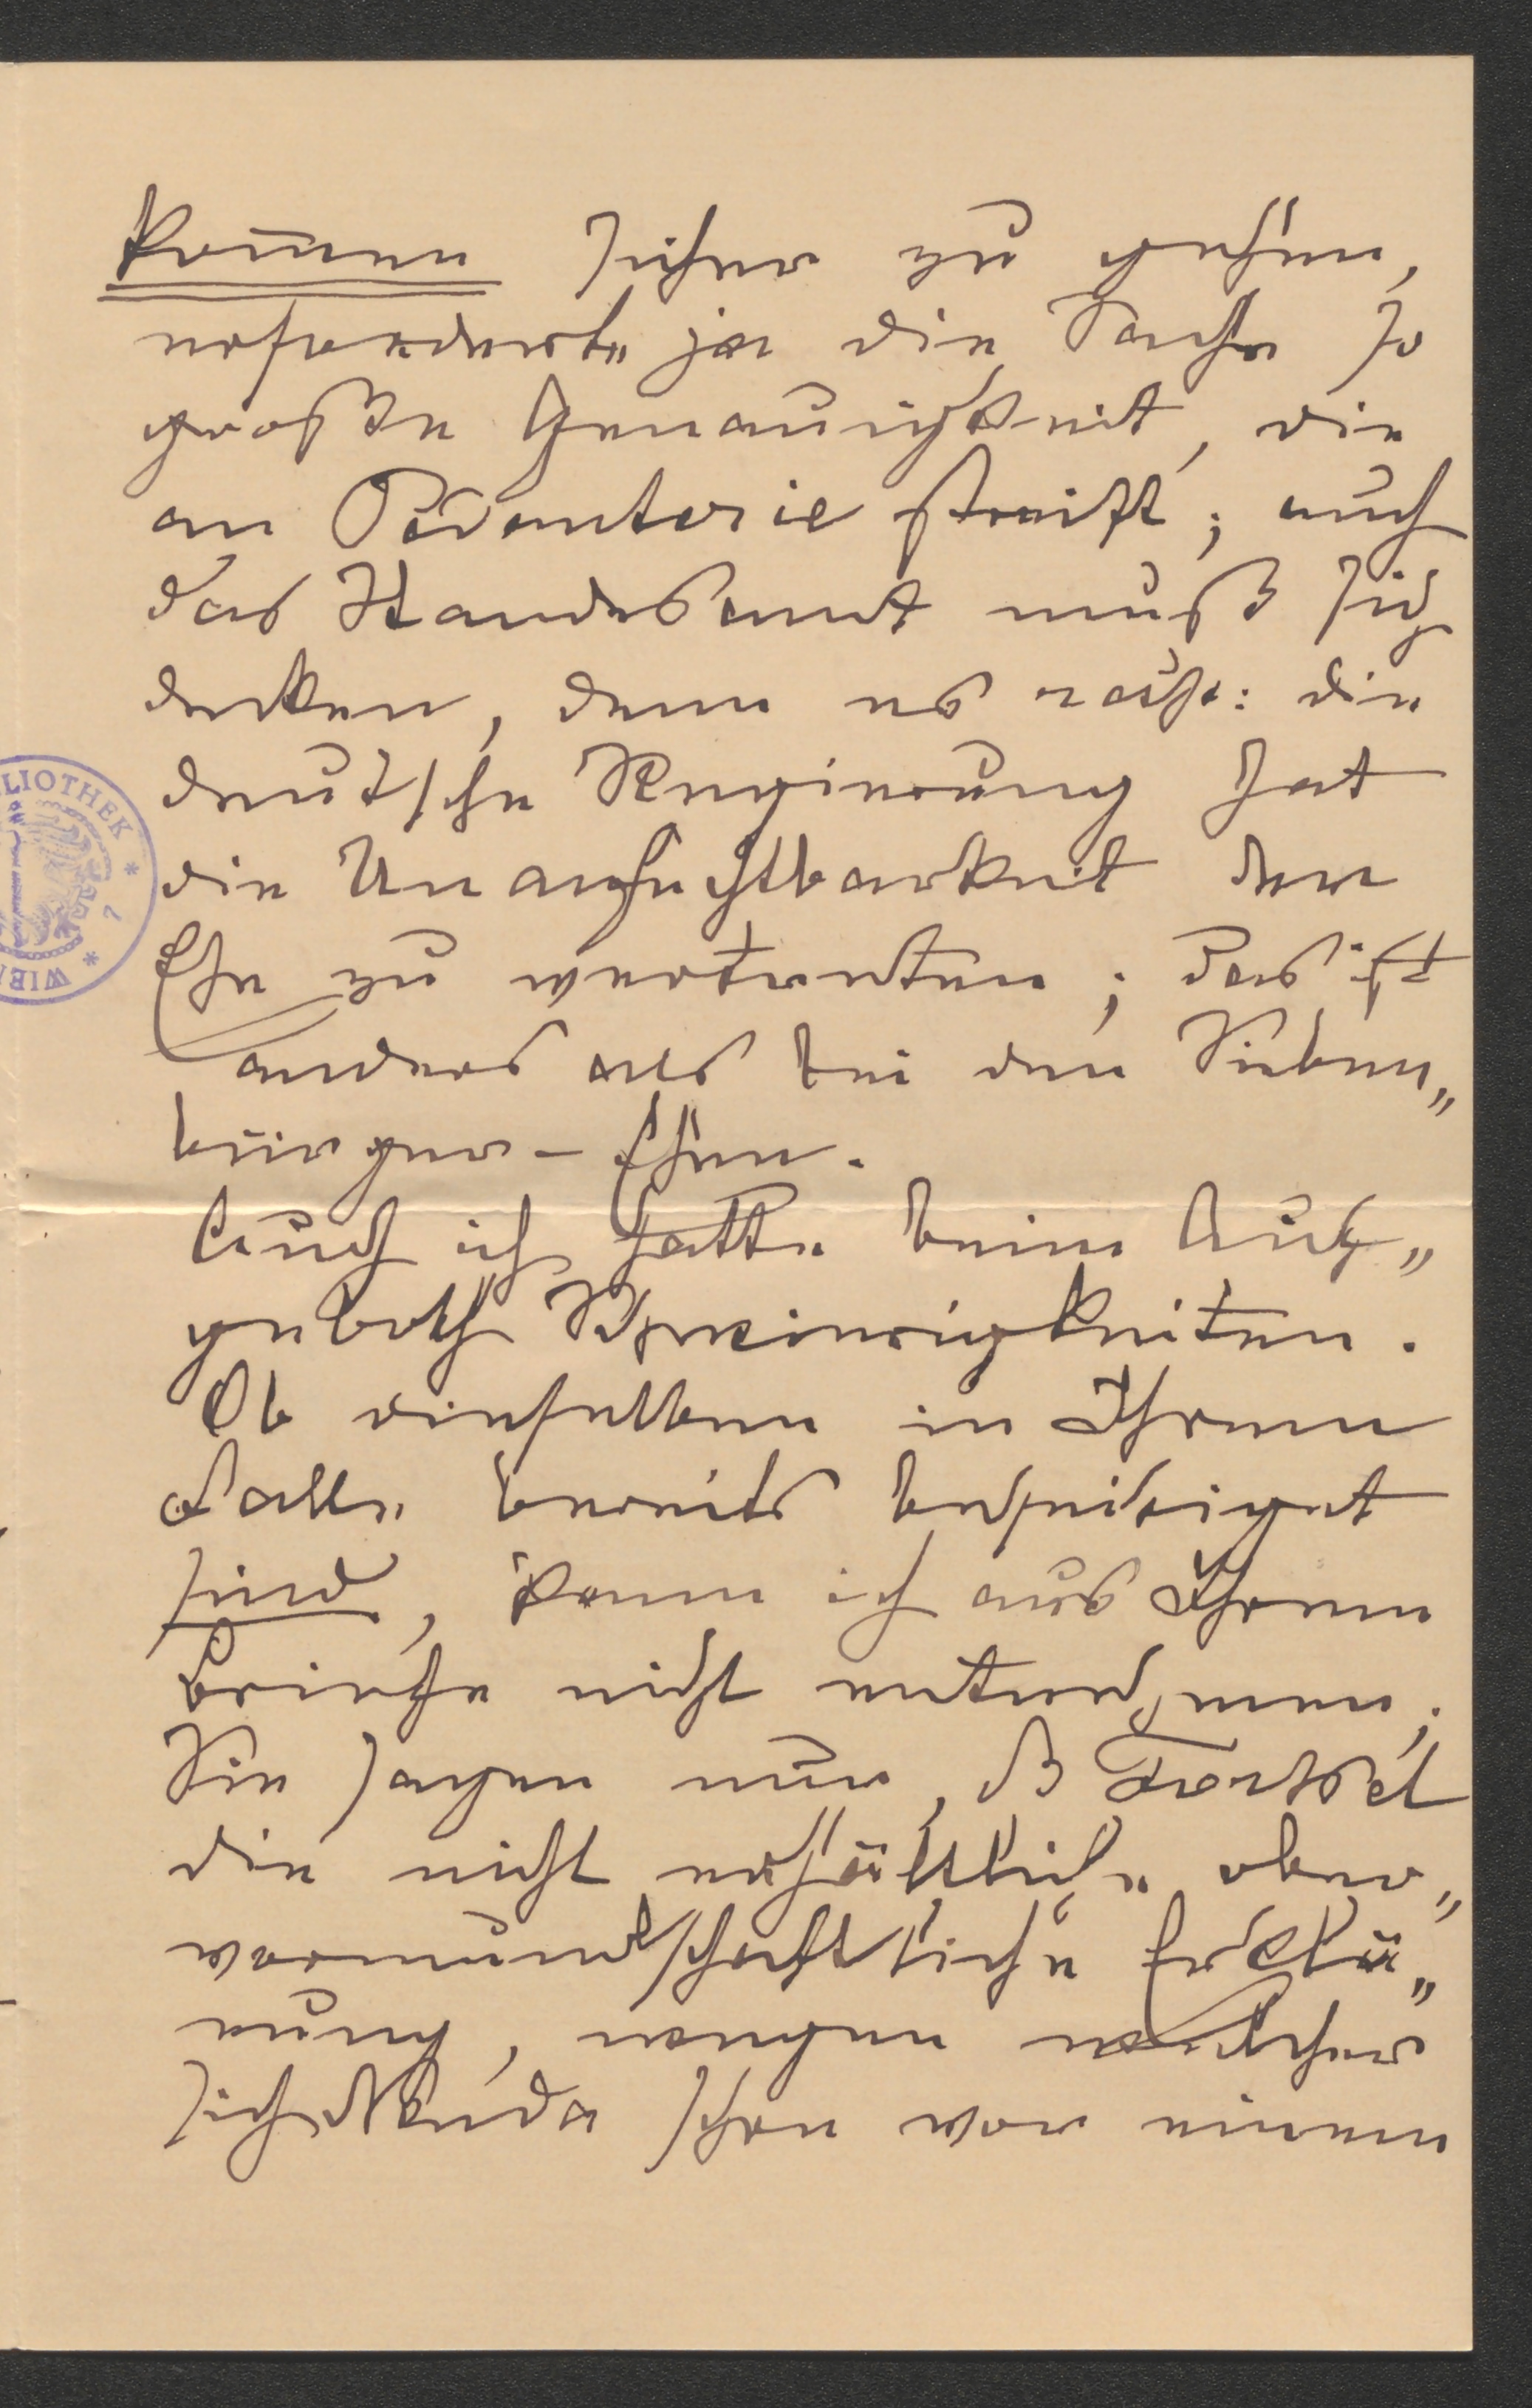 kom̄en sicher zu gehen,
erforderte ja die Sache so
große Genauigkeit, die
an Pedanterie streift; auch
das Standesamt muß sich
decken, denn es
deutsche Regierung hat
die Unanfechtbarkeit der
Ehe zu vertreten; das ist
anders als bei den Sieben„
bürger-Ehen.
Auch ich hatte beim Auf„
geboth Schwierigkeiten.
Ob dieselben in Ihrem
Falle bereits beseitigt
sind, kann ich aus Ihrem
Briefe nicht entnehmen;
Sie sagen nur, ß
die nicht erhältliche ober„
vormundschaftliche Erklä„
rung, wegen welcher
sich schon vor einem
BLIOTHEK
WIEN